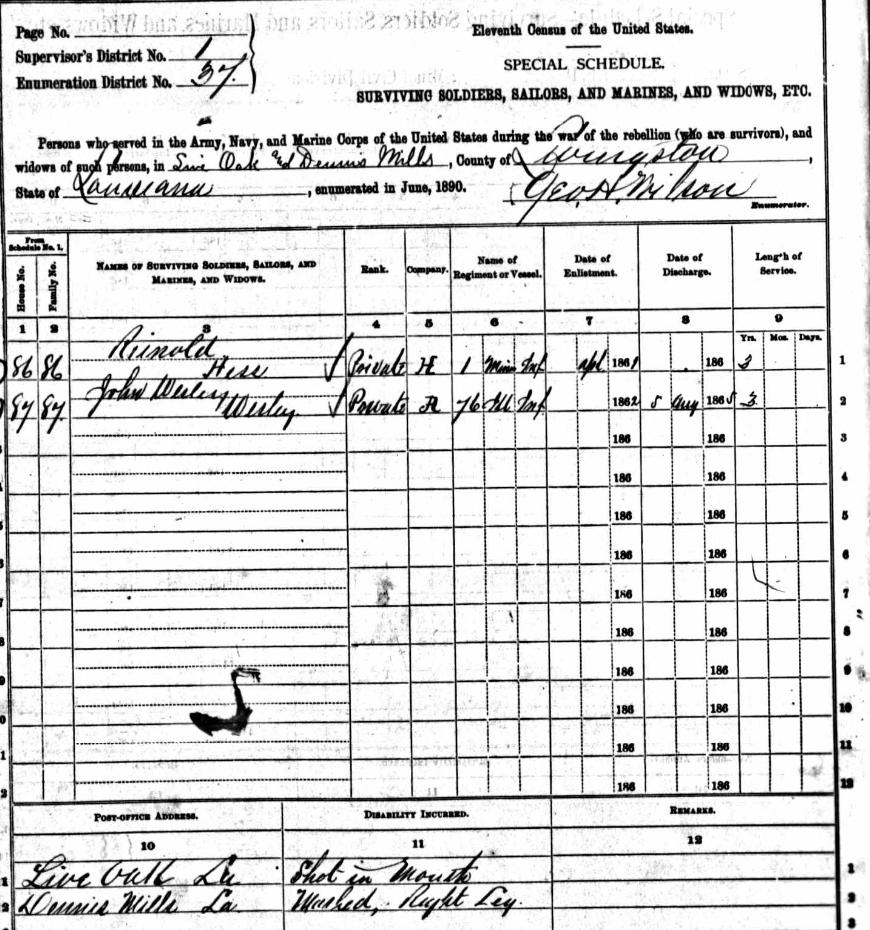 Page No.
Supervisor's District No. 1
Enumeration District No. 37.
Eleventh Census of the United States.
SPECIAL SCHEDULE.
SURVIVING SOLDIERS, SAILORS, AND MARINES, AND WIDOWS, ETC.
Persons who served in the Army, Navy, and Marine Corps of the United States during the war of the rebellion (who are survivors), and
widows of such persons, in Live Oak and Dennis Mills, County of Livingston,
State of Louisiana, enumerated in June, 1890. Geo. H. Wilson
Enumerator.
From Schedule No. 1.
House No. Family No. NAMES OF SURVIVING SOLDIERS, SAILORS, AND MARINES, AND WIDOWS. Rank. Company. Name of Regiment or Vessel. Date of Enlistment. Date of Discharge. Length of Service.
1 2 3 4 5 6 7 8 9
Yrs. Mos. Days.
86 86 Rienold Hess Private H 1 Minn Inf Apl 1861 186 3 1
87 87 John Wesley Wesley Private A 76 Ill Inf 1862 5 Aug 1865 3 2
186 186 3
186 186 4
186 186 5
186 186 6
186 186 7
186 186 8
186 186 9
186 186 10
186 186 11
186 186 12
POST-OFFICE ADDRESS. DISABILITY INCURRED. REMARKS.
10 11 12
1 Live Oak La Shot in Mouth 1
2 Dennis Mills La Right Leg. 2
3